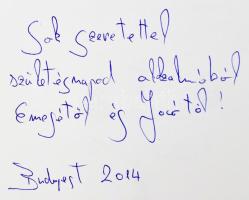 Sok szeretettel
születésnapod alkalmából
Emesétől és Jocótól!
Budapest 2014